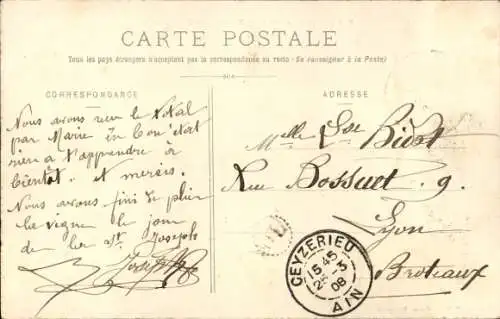 CARTE POSTALE
Tous les pays étrangers n'acceptent pas la correspondance au recto - Se renseigner à la Poste)
CORRESPONDANCE
ADRESSE
Nous avons reçu le
par Marie en bon état
rien a t'apprendre à
bientôt. et merci.
Nous avons fini de plier
la vigne le jour
de la St. Joseph
Joseph
Melle Lse Bidot
Rue Bossuet 9.
Lyon
Broteaux
CEYZERIEU
15 45
25 -3
08
AIN